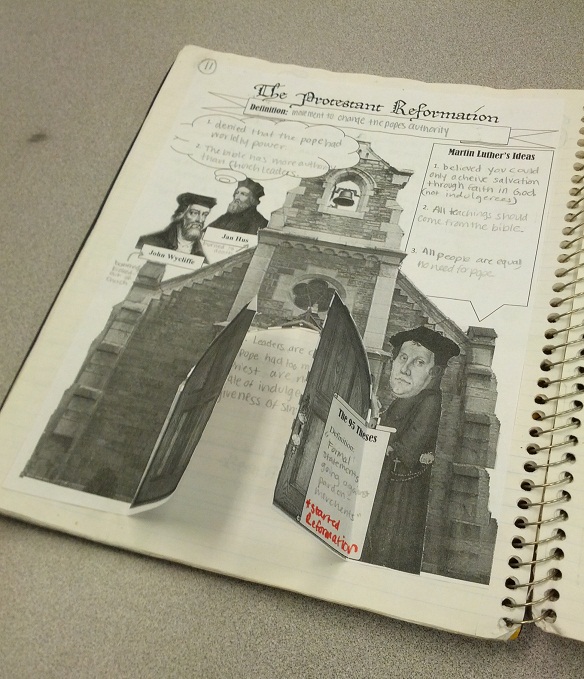 11
The Protestant Reformation
Definition: movement to change the popes authority
1. denied that the pope had
worldly power
2. The bible has more
than church leaders.
Jan Hus
John Wycliffe
Martin Luther's Ideas
1. believed you could
only acheive salvation
through faith in God
(not indulgences)
2. All teachings should
come from the bible.
3. All people are equal
no need for pope
Leaders are
pope had too
are
of indulg
iveness of sin
The 95 Theses
Definition:
"Formal
statements
going against
pardon
*started
Reformation